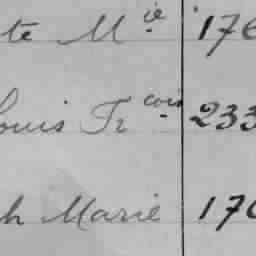 te Mie 176
Louis Frcois 233
h Marie 170